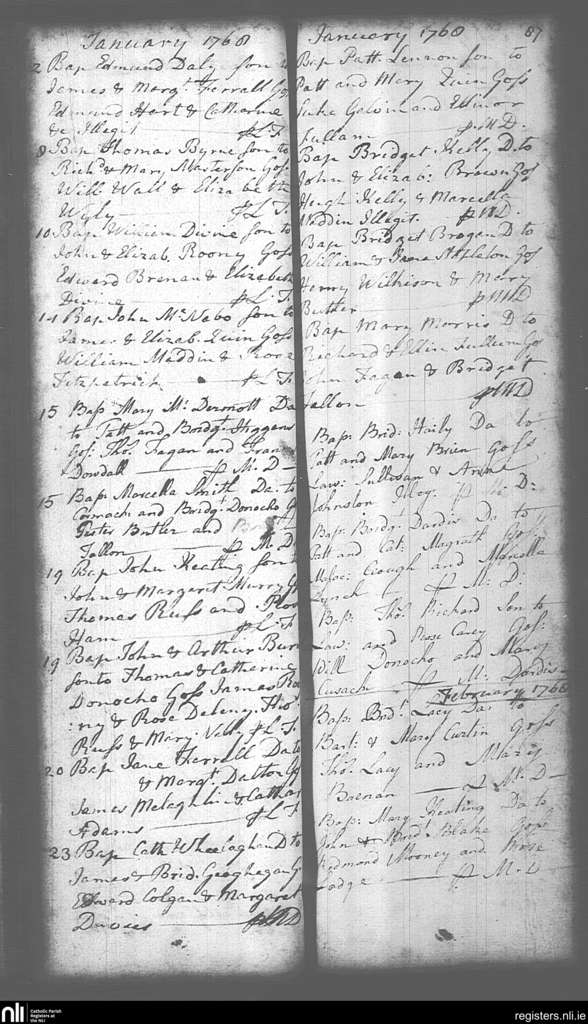 January 1768
2 Bap Edmund Daly son to
James & Margt. Ferrall Gos
Edmund Hart & Catharine
Illegit p L. F.
8 Bap Thomas Byrne son to
Richd & Mary Masterson Gos
Will Wall & Elizabeth
Wyly p L F.
10 Bap William Divine son to
John & Elizab. Rooney Goss
Edward Brenan & Elizabeth
Divine p L. F.
14 Bap John Mc Nebo son to
James & Elizab. Quin Goss
William Maddin & Rose
Fitzpatrick p L F.
15 Bap: Mary Mc: Dermott Da
to Patt and Bridgt. Higgans
Gos: Tho: Fagan and Fran
Dowdall p M: D
15 Bap: Marcella Smith Da: to
Cormack and Bridgt: Donocho G
Peter Butler and
Fallon p M. D
19 Bap John Keating son
John & Margaret Murry G
Thomas Russ and Ros
Ham p L. F.
19 Bap John & Arthur Burn
sonto Thomas & Catherine
Donocho Goss James Ro
ny & Rose Deleny. Tho:
Russ & Mary Vally p L. F.
20 Bap Jane Ferrell Da to
& Margt. Dalton Gos
James Melaghlin & Cathar
Adams p L F
23 Bap Cath Wheelaghan D to
James & Brid. Geoghegan G
Edward Colgan & Margaret
Davies p M D
January 1768 87
Bap Patt. Lennon son to
Patt and Mary Quin Goss
Luke Galvin and Ellinor
p M D:
Bap Bridget Kelly D. to
John & Elizab: Brown Gos
Hugh Kelly & Marcella
Maddin Illegit. p M D.
Bap Bridget Brogan D to
William & Jane Stapleton Gos
Henry Wilkison & Mary
Butler p M D
Bap Mary Morris D to
Richard & Ellin Gos
John Fagan & Bridget
Fallon p M D
Bap: Brid: Haily Da to
Patt and Mary Brien Goss
Law: Sullivan & Anne
Johnston p M: D:
Bap: Bridgt: Dardis Da to
Patt and Cat: Magrath Gos
Clough and Marcella
Lynch p M: D:
Bap: Tho: Richard Son to
Law: and Rose Carey Gos:
Bill Donocho and Mary
Cusack p M: Dardis
February 1768
Bap: Brdt. Lacy Da: to
Bart: & Marg Curtin Goss
Tho: Lacy and Mary
Brenan p M: D
Bap: Mary Keating Da to
John & Bridt. Blake Goss
Redmond Mooney and Rose
Lodge p M. D
nli
Catholic Parish
Registers at
the NLI
registers.nli.ie